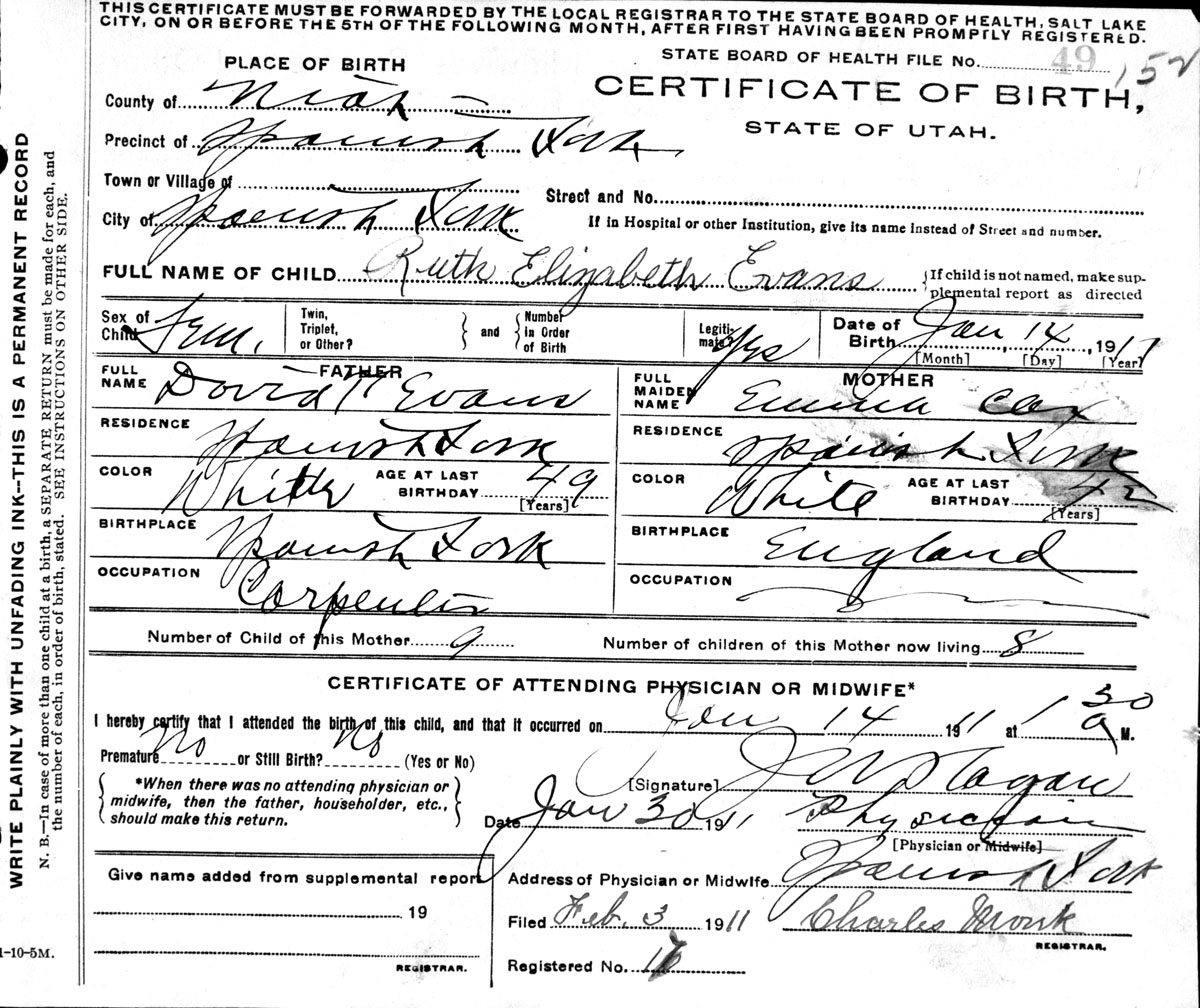 THIS CERTIFICATE MUST BE FORWARDED BY THE LOCAL REGISTRAR TO THE STATE BOARD OF HEALTH, SALT LAKE
CITY, ON OR BEFORE THE 5TH OF THE FOLLOWING MONTH, AFTER FIRST HAVING BEEN PROMPTLY REGISTERED.
STATE BOARD OF HEALTH FILE No. 49 152
PLACE OF BIRTH
CERTIFICATE OF BIRTH,
STATE OF UTAH.
County of Utah
Precinct of Spanish Fork
Town or Village of
Street and No.
City of Spanish Fork
If in Hospital or other Institution, give its name instead of Street and number.
FULL NAME OF CHILD Ruth Elizabeth Evans
If child is not named, make sup-
plemental report as directed
Sex of Child Fem.
Twin, Triplet, or Other?
and
Number in Order of Birth
Legiti-mate? Yes
Date of Birth Jan 14, 1911
[Month] [Day] [Year]
FATHER
FULL NAME David Evans
RESIDENCE Spanish Fork
COLOR White
AGE AT LAST BIRTHDAY 49
[Years]
BIRTHPLACE Spanish Fork
OCCUPATION Carpenter
MOTHER
FULL MAIDEN NAME Emma Cox
RESIDENCE Spanish Fork
COLOR White
AGE AT LAST BIRTHDAY 42
[Years]
BIRTHPLACE England
OCCUPATION
Number of Child of this Mother 9
Number of children of this Mother now living 8
CERTIFICATE OF ATTENDING PHYSICIAN OR MIDWIFE*
I hereby certify that I attended the birth of this child, and that it occurred on Jan 14 1911 at 1 30 a M.
Premature No or Still Birth? No (Yes or No)
*When there was no attending physician or
midwife, then the father, householder, etc.,
should make this return.
[Signature]
Date Jan 30 1911
Physician
[Physician or Midwife]
Give name added from supplemental report
19
REGISTRAR.
Address of Physician or Midwife Spanish Fork
Filed Feb. 3 1911 Charles Monk
REGISTRAR.
Registered No.
WRITE PLAINLY WITH UNFADING INK—THIS IS A PERMANENT RECORD
N. B.—In case of more than one child at a birth, a SEPARATE RETURN must be made for each, and
the number of each, in order of birth, stated. SEE INSTRUCTIONS ON OTHER SIDE.
1-10-5M.